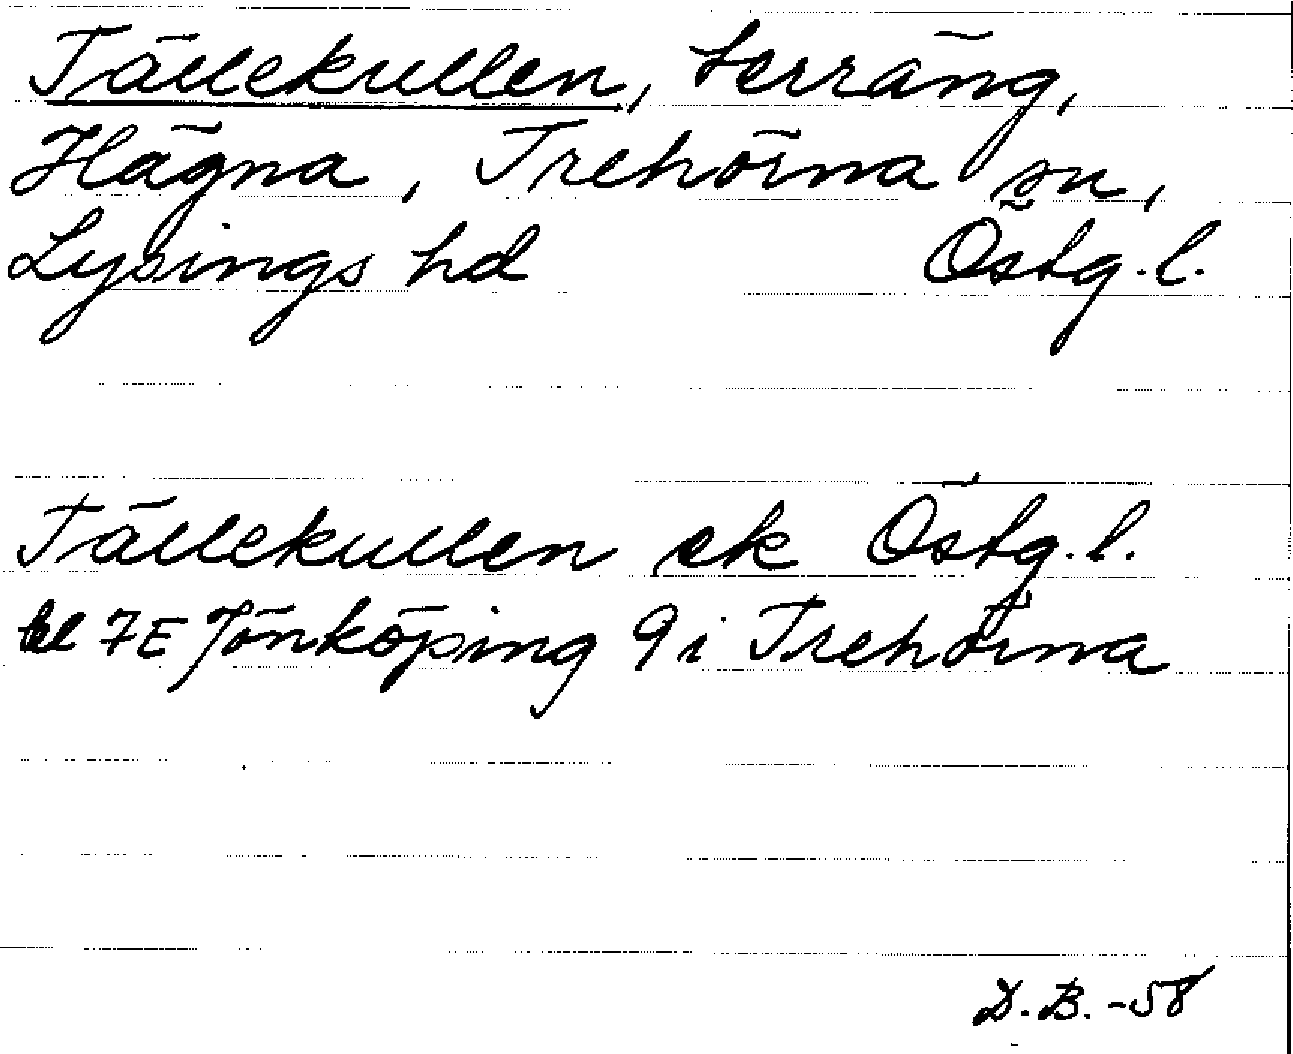 Tällekullen, terräng,
Hägna, Trehörna sn,
Lysings hd Östg. l.
Tällekullen ek Östg. l.
bl 7E Jönköping 9i Trehörna
D. B. -58